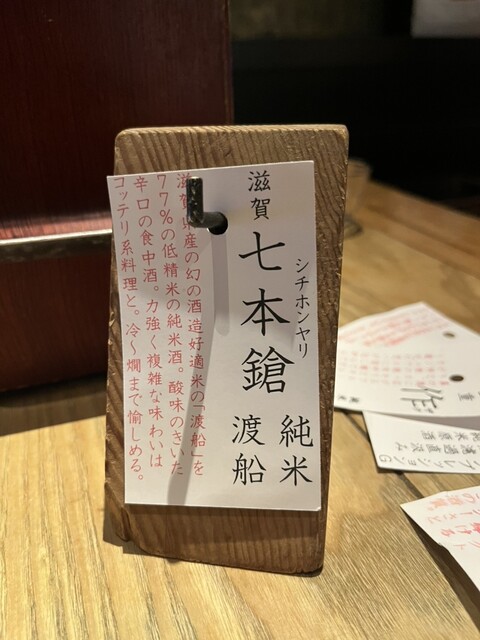 滋賀
七本鎗
シチホンヤリ
純米
渡船
滋賀県産の幻の酒造好適米の「渡船」を
77%の低精米の純米酒。酸味のきいた
辛口の食中酒。力強く複雑な味わいは
コッテリ系料理と。冷〜燗まで愉しめる。
作